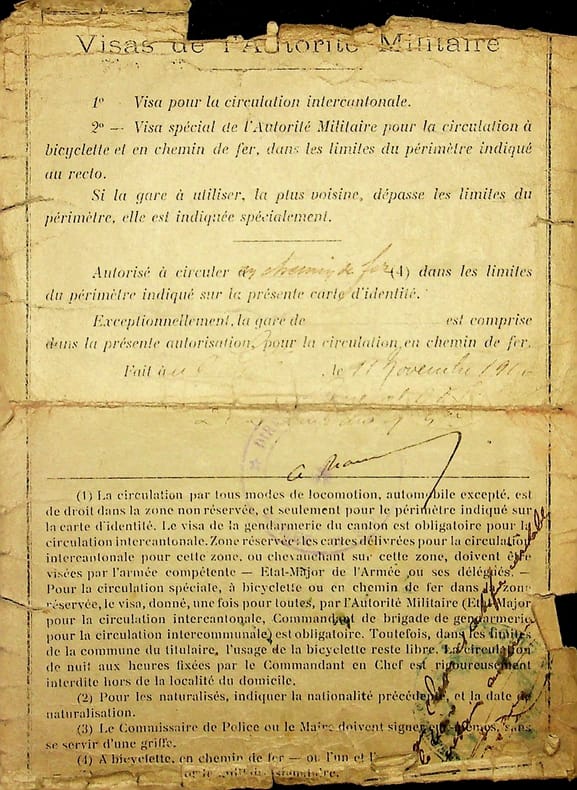 Visas de l'Autorité Militaire
1° Visa pour la circulation intercantonale.
2° — Visa spécial de l'Autorité Militaire pour la circulation à
bicyclette et en chemin de fer, dans les limites du périmètre indiqué
au recto.
Si la gare à utiliser, la plus voisine, dépasse les limites du
périmètre, elle est indiquée spécialement.
Autorisé à circuler en chemin de fer (4) dans les limites
du périmètre indiqué sur la présente carte d'identité.
Exceptionnellement, la gare de est comprise
dans la présente autorisation, pour la circulation en chemin de fer.
Fait à , le 11 Novembre
DIR
(1) La circulation par tous modes de locomotion, automobile excepté, est
de droit dans la zone non réservée, et seulement pour le périmètre indiqué sur
la carte d'identité. Le visa de la gendarmerie du canton est obligatoire pour la
circulation intercantonale. Zone réservée: les cartes délivrées pour la circulation
intercantonale pour cette zone, ou chevauchant sur cette zone, doivent être
visées par l'armée compétente — Etat-Major de l'Armée ou ses délégués. —
Pour la circulation spéciale, à bicyclette ou en chemin de fer dans la zone
réservée, le visa, donné, une fois pour toutes, par l'Autorité Militaire (Etat-Major
pour la circulation intercantonale, Commandant de brigade de gendarmerie
pour la circulation intercommunale) est obligatoire. Toutefois, dans les limites
de la commune du titulaire, l'usage de la bicyclette reste libre. La circulation
de nuit aux heures fixées par le Commandant en Chef est rigoureusement
interdite hors de la localité du domicile.
(2) Pour les naturalisés, indiquer la nationalité précédente, et la date de
naturalisation.
(3) Le Commissaire de Police ou le Maire doivent signer eux-mêmes, sans
se servir d'une griffe.
(4) A bicyclette, en chemin de fer — ou l'un et l'